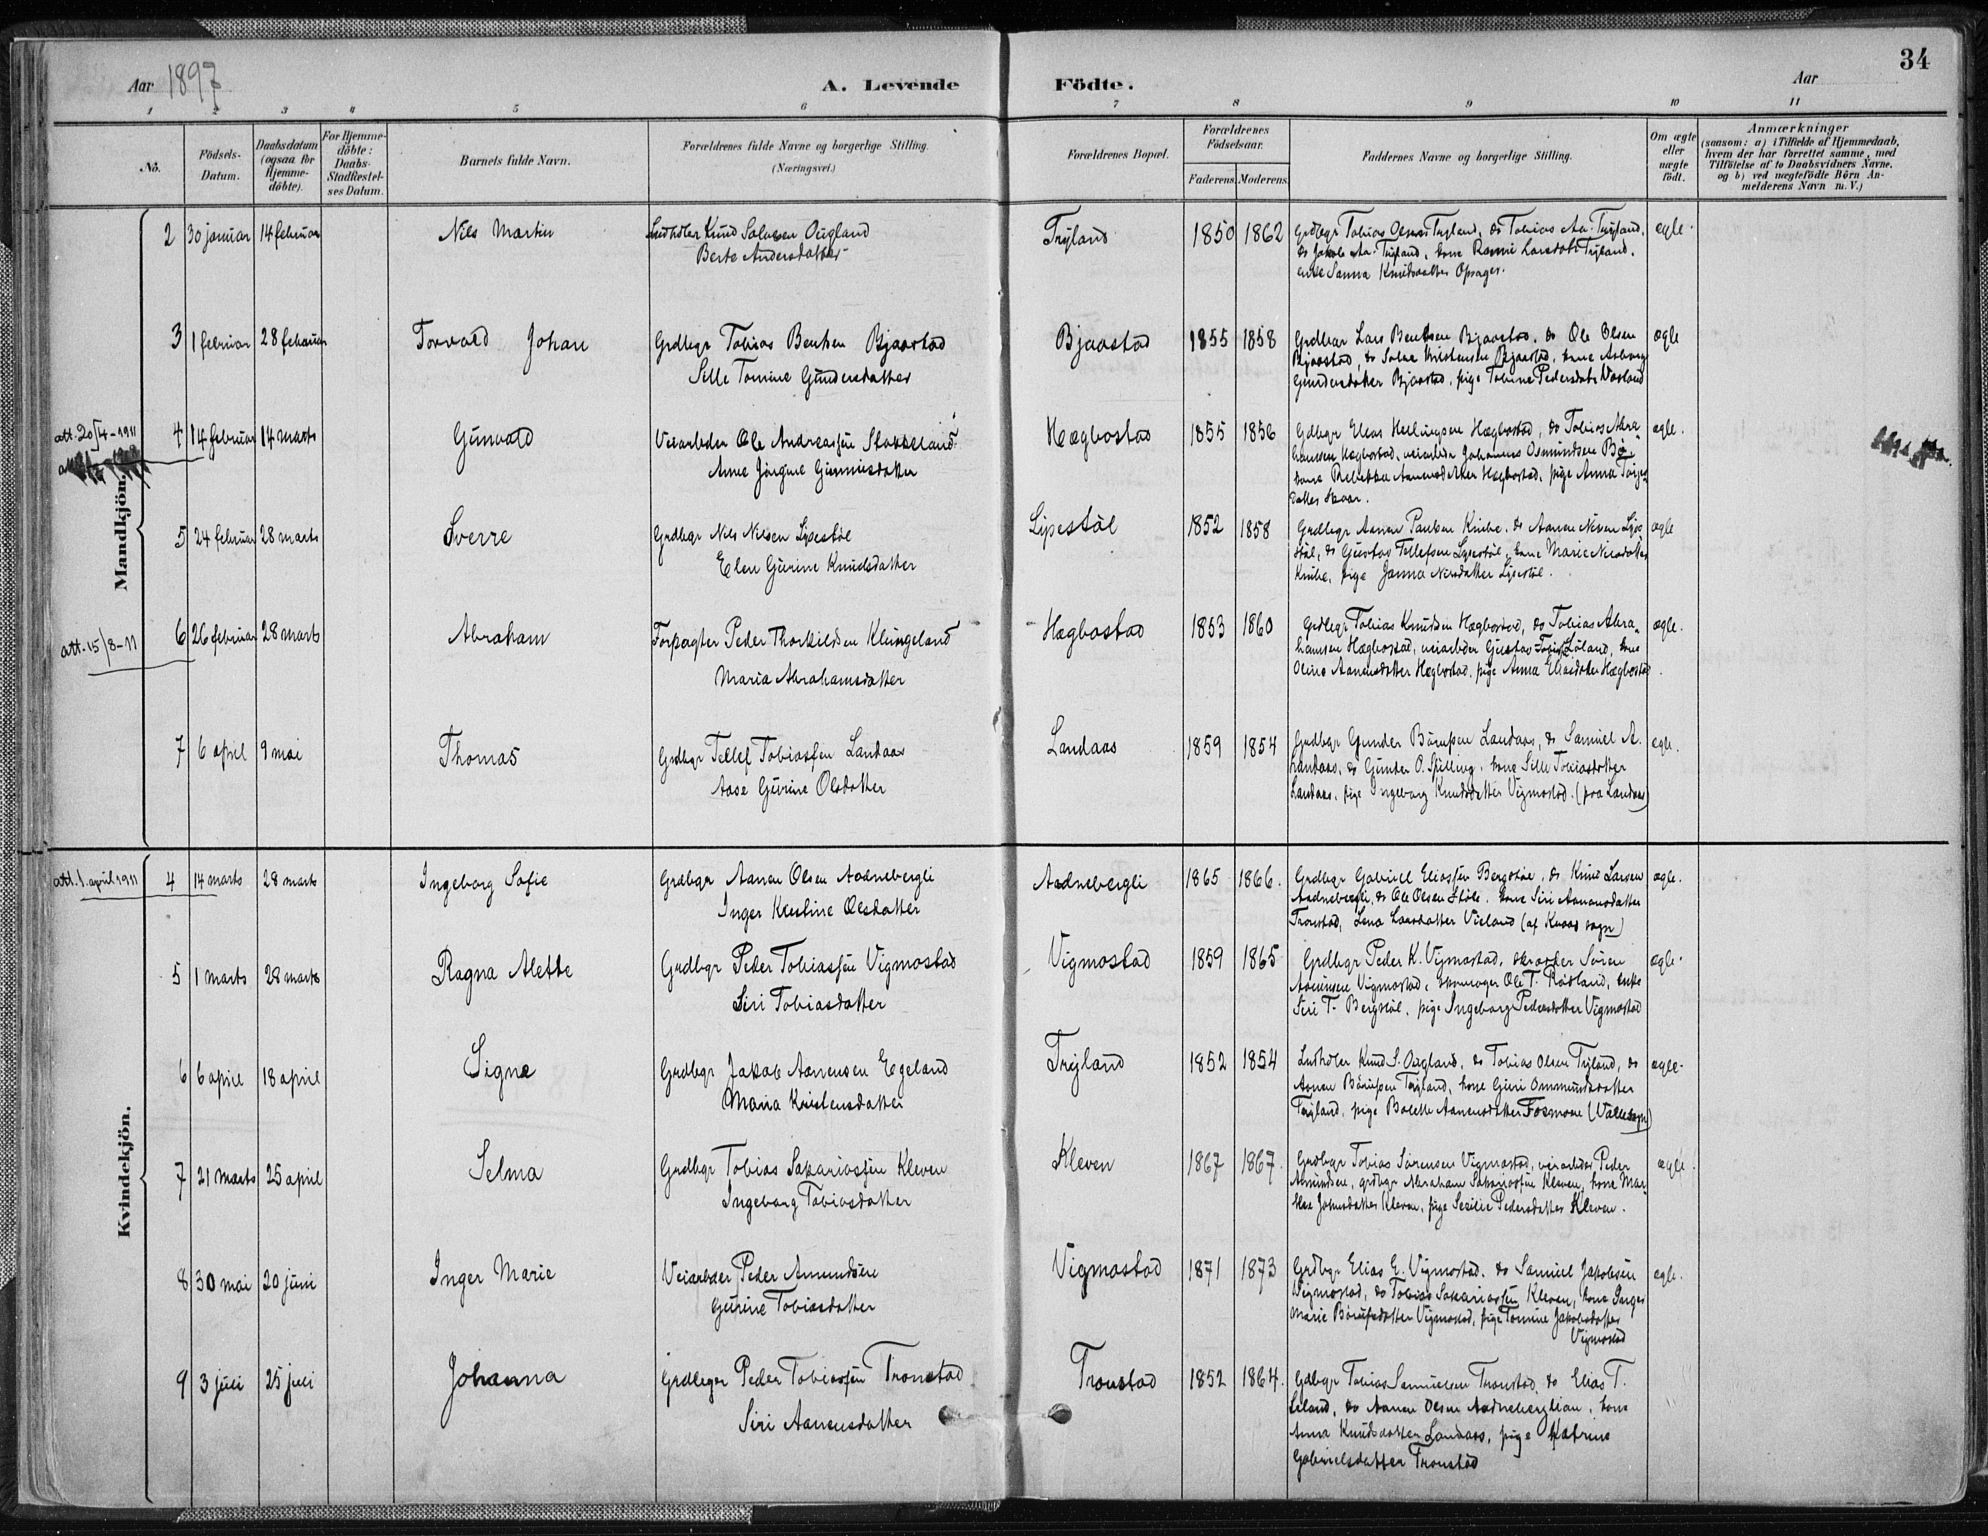 34
Aar 1897
A. Levende Födte.
Aar
1 2 3 4 5 6 7 8 9 10 11
No.
Födsels-Datum.
Daabsdatum (ogsaa for Hjemme-döbte).
For Hjemme-döbte: Daabs-Stadfæstel-ses Datum.
Barnets fulde Navn.
Forældrenes fulde Navne og borgerlige Stilling. (Næringsvei.)
Forældrenes Bopæl.
Forældrenes Födselsaar.
Faderens. Moderens.
Faddernes Navne og borgerlige Stilling.
Om ægte eller uægte födt.
Anmærkninger
(saasom: a) i Tilfælde af Hjemmedaab, hvem der har forrettet samme, med Tilföielse af to Daabsvidners Navne, og b) ved uægtefödte Börn An-melderens Navn m. V.)
Mandkjön.
2 30 januar 14 februar Nils Martin
Knud Salvesen Ougland
Berte Andersdatter
Tryland 1850 1862
Grdbgr Tobias Olsen Tryland, do Tobias Aa. Tryland,
do Jakob Aa. Tryland, kone Larsdatr Tryland,
Sanna Knudsdatter Opsager.
ægte.
3 1 februar 28 februar Torvald Johan
Grdbgr Tobias Bentsen Bjaastad
Sille Tomine Gundersdatter
Bjaastad 1855 1858
Grdbgr Lars Bentsen Bjaastad, do Ole Olsen
Bjaastad, do Salve Kristensen Bjaastad, kone Asborg
Gundersdatter Bjaastad, pige Tobine Pedersdatr
ægte
att. 20/4-1911
4 14 februar 14 marts Gunvald
Veiarbeder Ole Andreassen Stokkeland
Anne Jörgine Gunmusdatter
Hægbostad 1855 1856
Gdbgr Elias Hægbostad, do Tobias Abra-
hamsen Hægbostad, veiarbeder Johannes Osmundsen
kone Rebekka Aanensdatter Hægbostad, pige Anna
ægte.
5 24 februar 28 marts Sverre
Grdbgr Nils Nilsen Lipestöl
Elen Gurine Knudsdatter
Lipestöl 1852 1858
Grdbgr Aanen Paulsen Knibe, do Aanen Nilsen
stöl, do Gustav Tellefsen Lipestöl, kone Marie Nilsdatter
Knibe, pige Janna Nilsdatter Lipestöl.
ægte
att. 15/8-11
6 26 februar 28 marts Abraham
Forpagter Peder Thorkildsen Klungeland
Maria Abrahamsdatter
Hægbostad 1853 1860
Grdbgr Tobias Knudsen Hægbostad, do Tobias Abra-
hamsen Hægbostad, veiarbeder Gustav Löland, kone
Oline Aanensdatter Hægbostad, pige Anna Eliasdatter Hægbostad.
ægte.
7 6 april 9 mai Thomas
Grdbgr Tellef Tobiassen Landaas
Aase Gurine Olsdatter
Landaas 1859 1854
Grdbgr Gunder Börufsen Landaas, do Samuel A.
Landaas, do Gunder O. Spilling, kone Sille Tobiasdatter
Landaas, pige Ingeborg Knudsdatter Vigmostad. (paa Landaas)
ægte.
Kvindekjön.
att. 1. april 1911
4 14 marts 28 marts Ingeborg Sofie
Grdbgr Aanen Olsen Aadnebergli
Inger Kristine Olsdatter
Aadnebergli 1865 1866.
Grdbgr Gabriel Eliassen Bergstöl, do Knud Larsen
Aadnebergli, do Ole Olsen Stöle, kone Siri Aanensdatter
Tronstad, Lena Larsdatter Vieland (af Kvaas sogn)
ægte.
5 1 marts 28 marts Ragna Alette
Grdbgr Peder Tobiassen Vigmostad
Siri Tobiasdatter
Vigmostad 1859 1865
Grdbgr Peder K. Vigmostad, Sören
Vigmostad, skomager Ole T. Rödland, enke
Siri T. Bergstöl, pige Ingeborg Pedersdatter Vigmostad
ægte.
6 6 april 18 april Signe
Grdbgr Jakob Aanensen Egeland
Maria Kristensdatter
Tryland 1852 1854
Knud S. Ougland, do Tobias Olsen Tryland, do
Aanen Börufsen Tryland, kone Guri Ommundsdatter
Tryland, pige Bolette Aanensdatter Fosmone (Valle sogn)
ægte.
7 21 marts 25 april Selma
Grdbgr Tobias Sakariassen Kleven
Ingeborg Tobiasdatter
Kleven 1867 1867.
Grdbgr Tobias Sörensen Vigmostad, veiarbeder Peder
Amundsen, grdbgr Abraham Sakariassen Kleven, kone Mar-
the Johnsdatter Kleven, pige Sesilie Pedersdatter Kleven.
ægte.
8 30 mai 20 juni Inger Marie
Veiarbeder Peder Amundsen
Gurine Tobiasdatter
Vigmostad 1871 1873
Grdbgr Elias E. Vigmostad, do Samuel Jakobsen
Vigmostad, do Tobias Sakariassen Kleven, kone Inger
Marie Börufsdatter Vigmostad, pige Tomine Jakobsdatter
Vigmostad
ægte.
9 3 juli 25 juli Johanna
Grdbgr Peder Tobiassen Tronstad
Siri Aanensdatter
Tronstad 1852 1864.
Gdbgr Tobias Samuelsen Tronstad, do Elias T.
Leland, do Aanen Olsen Aadneberglian, kone
Anna Knudsdatter Landaas, pige Katrine
Gabrielsdatter Tronstad